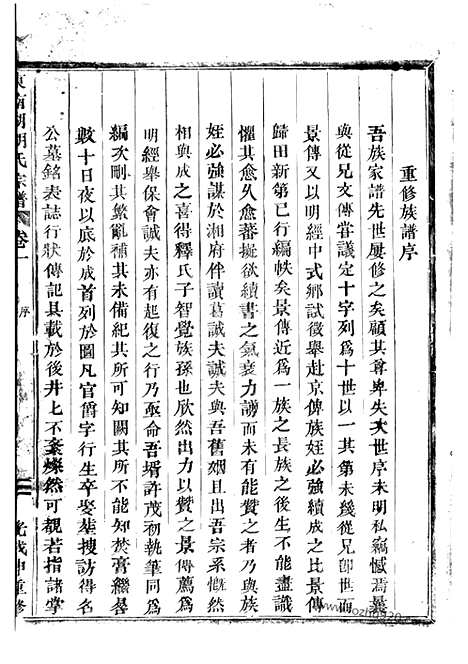 重修族譜序
吾族家譜先世屢修之矣顧其尊卑失次世序未明私竊憾焉景
與從兄文傳嘗議定十字列爲十世以一其第未幾從兄卽世而
景傳又以明經中式鄉試徵舉赴京俾族姪必強續成之比景傳
歸田新第已行編帙矣景傳近爲一族之長族之後生不能盡識
懼其愈久愈蕃擬欲續書之氣衰力謭而未有能贊之者乃與族
姪必強謀於湘府伴讀葛誠夫誠夫與吾舊姻且出吾宗系慨然
相與成之喜得釋氏子智覺族孫也欣然出力以贊之景傳薦爲
明經舉保會誠夫亦有起復之行乃亟命吾壻許茂初執筆同爲
編次刪其繁亂補其未備紀其所可知闕其所不能知焚膏繼晷
數十日夜以底於成首列於圖凡官爵字行生卒娶墓搜訪得名
公墓銘表誌行狀傳記具載於後井上不紊燦然可觀若指諸掌
東南湖胡氏宗譜 卷一
序
光戊申重修